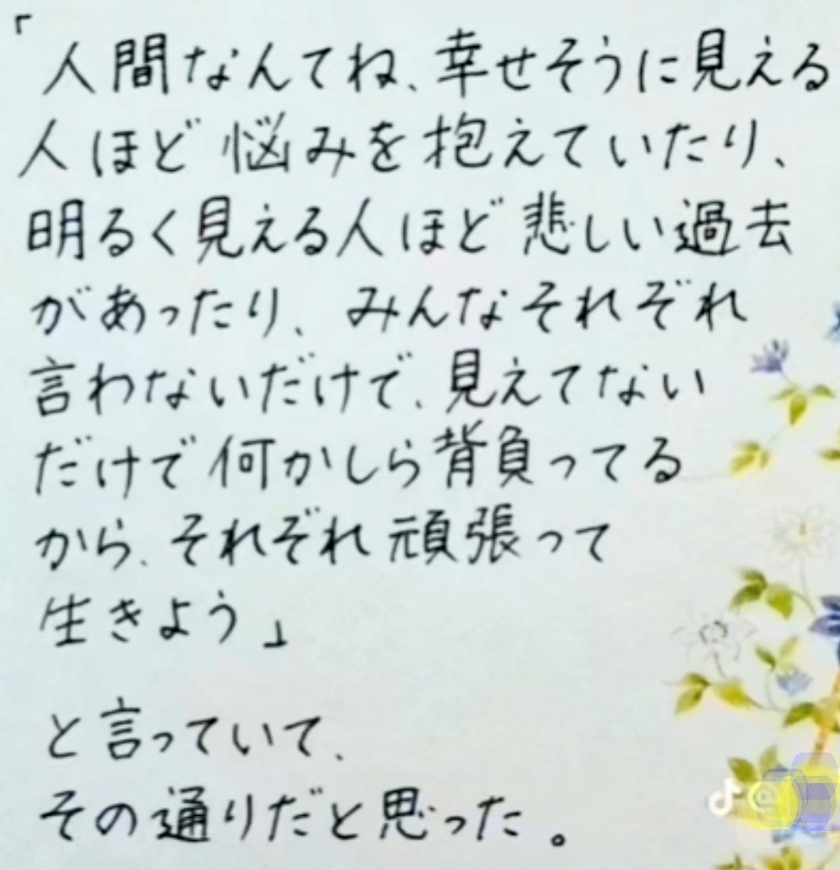 「人間なんてね、幸せそうに見える
人ほど悩みを抱えていたり、
明るく見える人ほど悲しい過去
があったり、みんなそれぞれ
言わないだけで、見えてない
だけで何かしら背負ってる
から、それぞれ頑張って
生きよう」
と言っていて、
その通りだと思った。